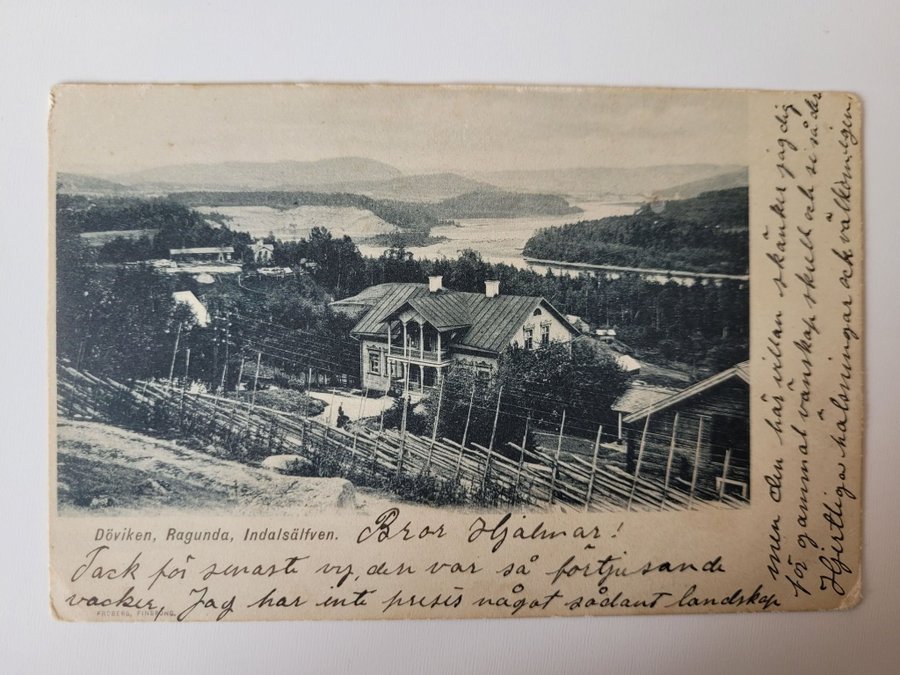 Döviken, Ragunda, Indalsälfven.
Bror Hjalmar!
Tack för senaste vy, den var så förtjusande
vacker. Jag har inte presis något sådant landskap
men den här villan skänker jag dig
för gammal vänskap skull och si så der
Hjertliga hälsningar och välkommen igen,
FINSPONG.